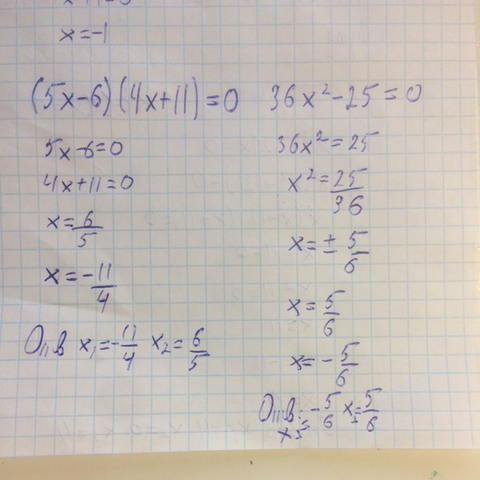 x=-1
(5x-6)(4x+11)=0
5x-6=0
4x+11=0
x=6/5
x=-11/4
x₁=-11/4 x₂=6/5
36x²-25=0
36x²=25
x²=25/36
x=±5/6
x=5/6
x=-5/6
-5/6 x=5/6